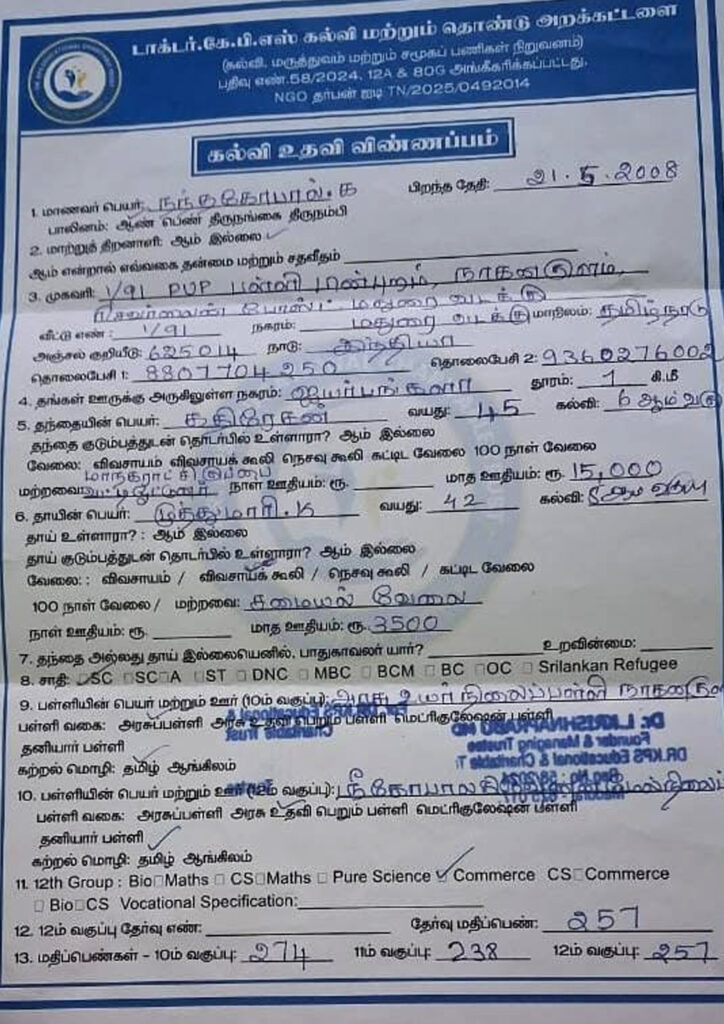 டாக்டர்.கே.பி.எஸ் கல்வி மற்றும் தொண்டு அறக்கட்டளை
(கல்வி, மருத்துவம் மற்றும் சமூகப் பணிகள் நிறுவனம்)
பதிவு எண்.58/2024, 12A & 80G அங்கீகரிக்கப்பட்டது.
NGO தர்பன் ஐடி TN/2025/0492014
கல்வி உதவி விண்ணப்பம்
1. மாணவர் பெயர்: நந்தகோபால்.க பிறந்த தேதி: 21.5.2008
பாலினம்: ஆண் பெண் திருநங்கை திருநம்பி
2. மாற்றுத் திறனாளி: ஆம் இல்லை
ஆம் என்றால் எவ்வகை தன்மை மற்றும் சதவீதம்
3. முகவரி: 1/91 PUP பள்ளி பின்புறம், நாகனகுளம்,
போஸ்ட் மதுரை வடக்கு
வீட்டு எண்: 1/91 நகரம்: மதுரை வடக்கு மாநிலம்: தமிழ்நாடு
அஞ்சல் குறியீடு: 625014 நாடு: இந்தியா
தொலைபேசி 1: 8807704250 தொலைபேசி 2: 9360276002
4. தங்கள் ஊருக்கு அருகிலுள்ள நகரம்: ஐயர்பங்களா தூரம்: 1 கி.மீ
5. தந்தையின் பெயர்: கதிரேசன் வயது: 45 கல்வி: 6 ஆம் வகு
தந்தை குடும்பத்துடன் தொடர்பில் உள்ளாரா? ஆம் இல்லை
வேலை: விவசாயம் விவசாயக் கூலி நெசவு கூலி கட்டிட வேலை 100 நாள் வேலை
மாநகராட்சி
மற்றவை: நாள் ஊதியம்: ரூ. மாத ஊதியம்: ரூ. 15,000
6. தாயின் பெயர்: முத்துமாரி.K வயது: 42 கல்வி: 8 ஆம் வகுப்பு
தாய் உள்ளாரா? : ஆம் இல்லை
தாய் குடும்பத்துடன் தொடர்பில் உள்ளாரா? ஆம் இல்லை
வேலை: : விவசாயம் / விவசாயக் கூலி / நெசவு கூலி / கட்டிட வேலை
100 நாள் வேலை / மற்றவை: சமையல் வேலை
நாள் ஊதியம்: ரூ. மாத ஊதியம்: ரூ. 3500
7. தந்தை அல்லது தாய் இல்லையெனில், பாதுகாவலர் யார்? உறவின்மை:
8. சாதி: SC SCA ST DNC MBC BCM BC OC Srilankan Refugee
9. பள்ளியின் பெயர் மற்றும் ஊர் (10ம் வகுப்பு): அரசு உயர்நிலைப்பள்ளி நாகனகுள
பள்ளி வகை: அரசுப்பள்ளி அரசு உதவி பெறும் பள்ளி மெட்ரிகுலேஷன் பள்ளி
தனியார் பள்ளி
Dr. L.KRISHNAPRABU MD
Founder & Managing Trustee
DR.KPS Educational & Charitable T
கற்றல் மொழி: தமிழ் ஆங்கிலம்
10. பள்ளியின் பெயர் மற்றும் ஊர் (12ம் வகுப்பு):
பள்ளி வகை: அரசுப்பள்ளி அரசு உதவி பெறும் பள்ளி மெட்ரிகுலேஷன் பள்ளி
தனியார் பள்ளி
கற்றல் மொழி: தமிழ் ஆங்கிலம்
11. 12th Group : Bio Maths CS Maths Pure Science Commerce CS Commerce
Bio CS Vocational Specification:
12. 12ம் வகுப்பு தேர்வு எண்: தேர்வு மதிப்பெண்: 257
13. மதிப்பெண்கள் - 10ம் வகுப்பு: 274 11ம் வகுப்பு: 238 12ம் வகுப்பு: 257